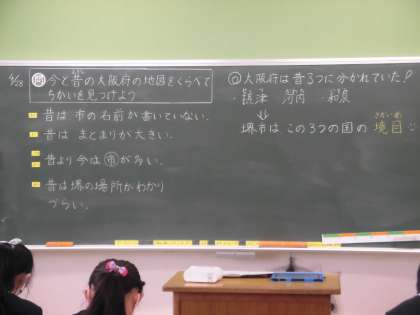 4/28
問 今と昔の大阪府の地図をくらべて
ちがいを見つけよう
昔は市の名前が書いていない.
昔はまとまりが大きい.
昔より今は市が多い.
昔は堺の場所がわかり
づらい.
大阪府は昔3つに分かれていた!
・摂津 河内 ・和泉
⇓
さかいめ
堺市はこの3つの国の境目